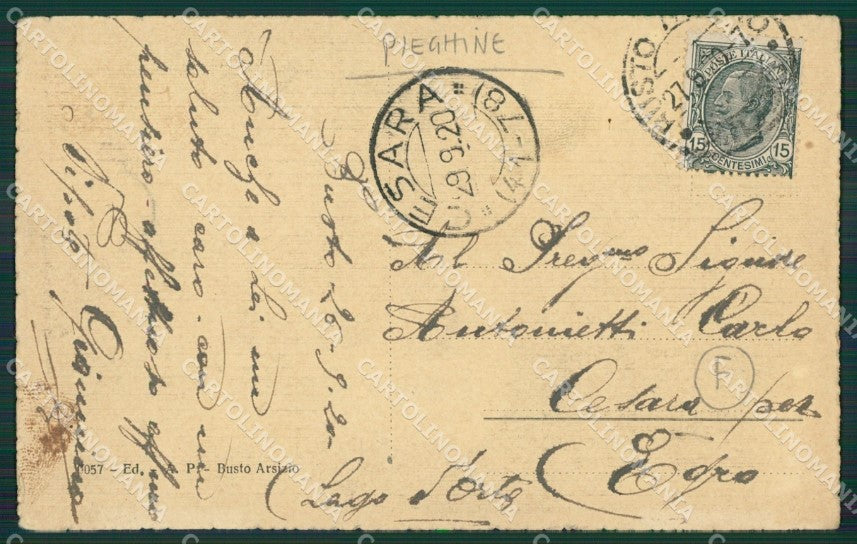 PIEGHINE
BUSTO
27.9
POSTE ITALIANE
15 15
CENTESIMI
CESARA (4-1-78)
29.9.20
Busto 26-9-20
Anche a Lei un
saluto caro con un
pensiero affettuoso aff.mo
Nipote
Al Preg.mo Signore
Antonietti Carlo
Cesara per
Egro
(Lago d'Orta
F
7057 - Ed. - A. P. - Busto Arsizio
CARTOLINOMANIA